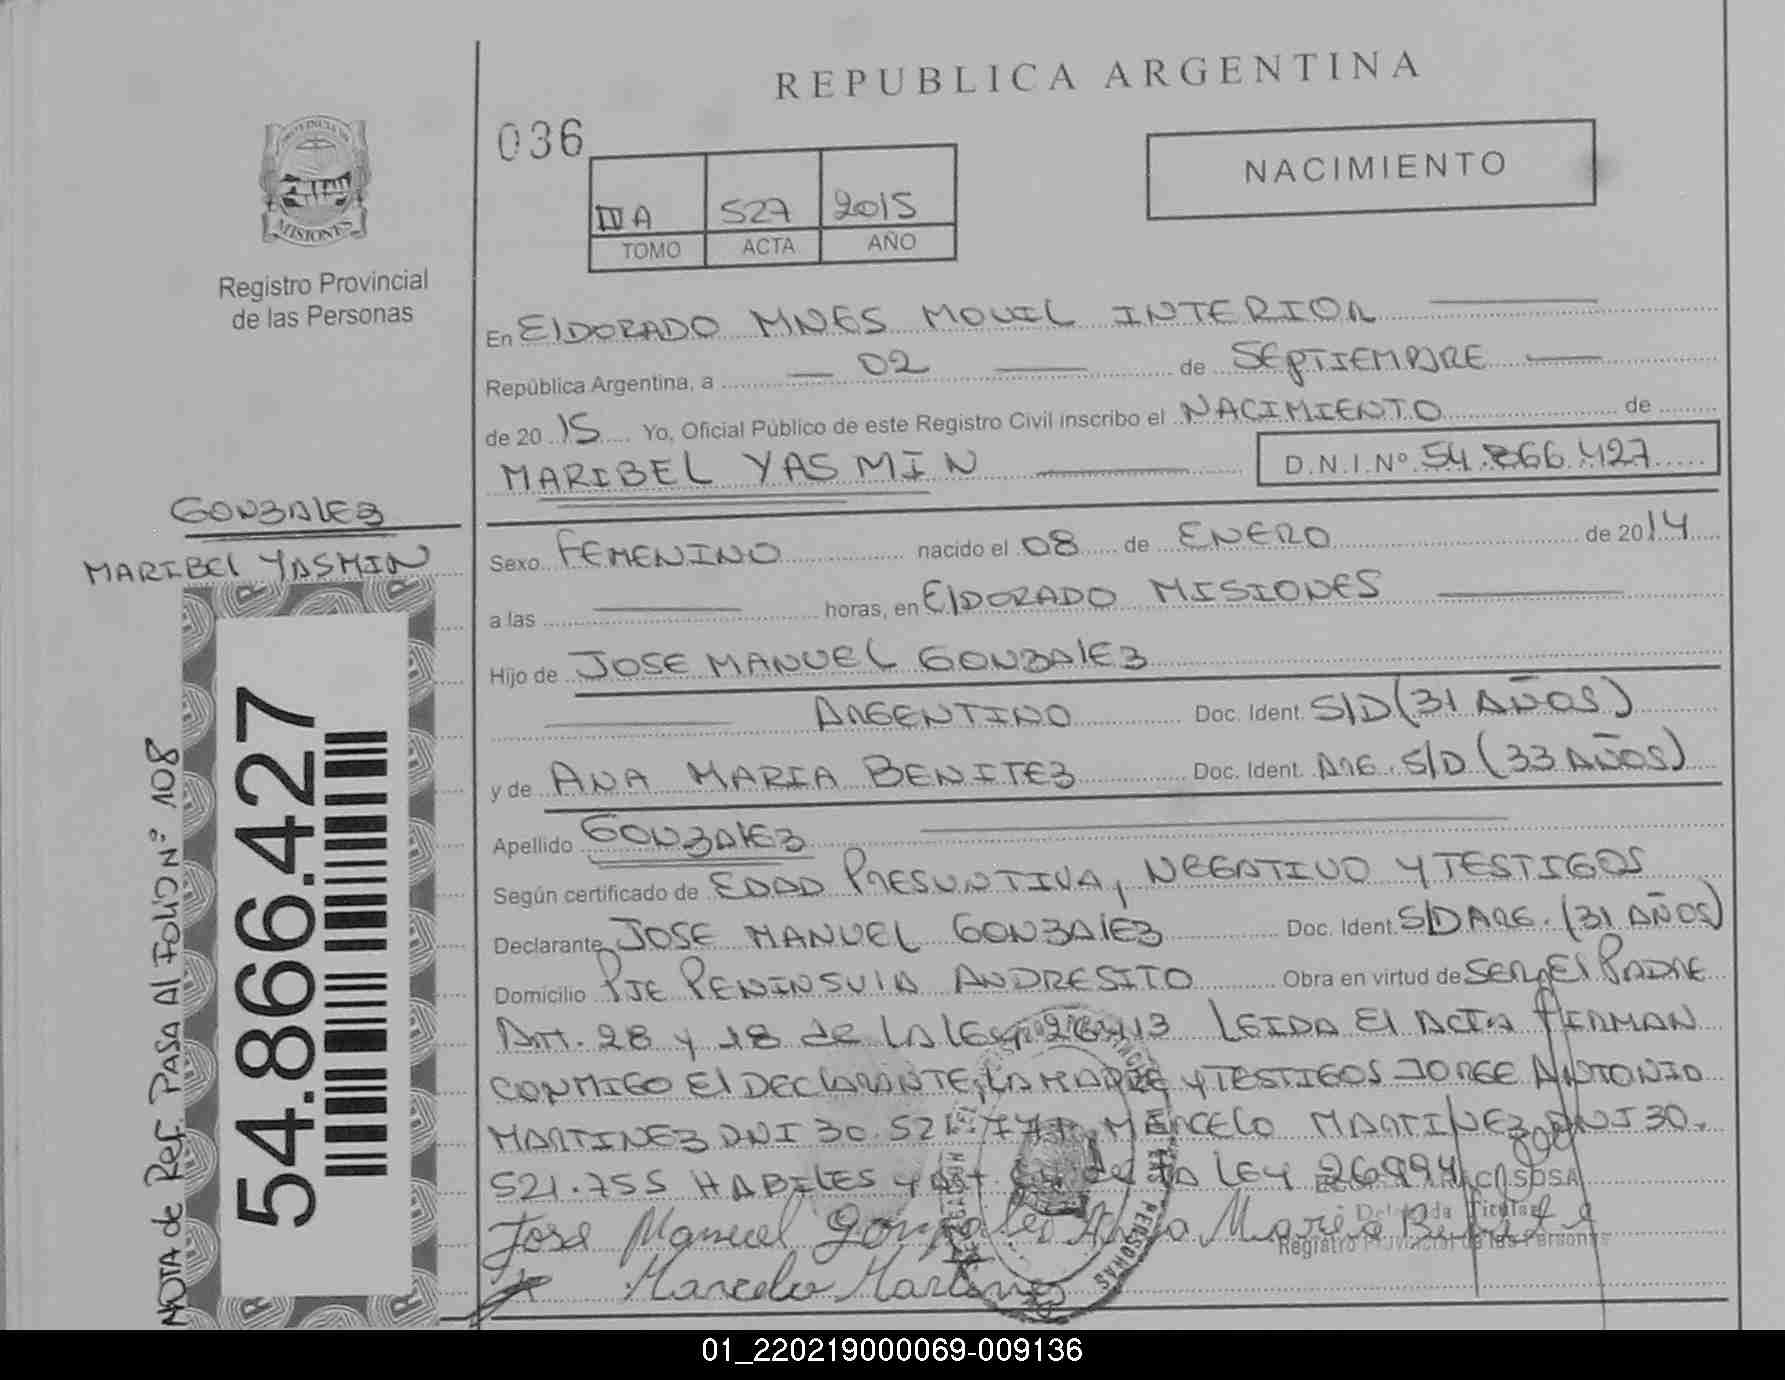 REPUBLICA ARGENTINA
036
NACIMIENTO
PROVINCIA DE
MISIONES
Registro Provincial
de las Personas
IV A 527 2015
TOMO ACTA AÑO
En ElDORADO MNES MOVIL INTERIOR
República Argentina, a 02 de SEPTIEMBRE
de 20 15 Yo, Oficial Público de este Registro Civil inscribo el NACIMIENTO de
MARIBEL YASMIN D.N.I.Nº 54.866.427
GONZALEZ
MARIBEl YASMIN
54.866.427
NOTA de Ref. PASA Al FOLIO Nº 108
Sexo FEMENINO nacido el 08 de ENERO de 2014
a las horas, en ElDORADO MISIONES
Hijo de JOSE MANUEL GONZAlEZ
ARGENTINO Doc. Ident. S/D (31 AÑOS)
y de ANA MARIA BENITEZ Doc. Ident. ARG. S/D (33 AÑOS)
Apellido GONZAlEZ
Según certificado de EDAD PRESUNTIVA, NEGATIVO Y TESTIGOS
Declarante JOSE MANUEL GONZAlEZ Doc. Ident. S/D ARG. (31 AÑOS)
Domicilio PJE PENINSUlA ANDRESITO Obra en virtud de SER El PADRE
Art. 28 y 18 de LA lEY 26413 LEIDA El ACTA FIRMAN
CONMIGO El DEClARANTE, LA MADRE y TESTIGOS JORGE ANTONIO
MARTINEZ DNI 30.521. MARCELO MARTINEZ DNI 30.
521.755 HABILES y Art de LA LEY 26994
Delegada Titular
Registro Provincial de las Personas
Jose Manuel Gonzalez Ana Maria Benitez
Marcelo Martinez
PERSONAS
01_220219000069-009136